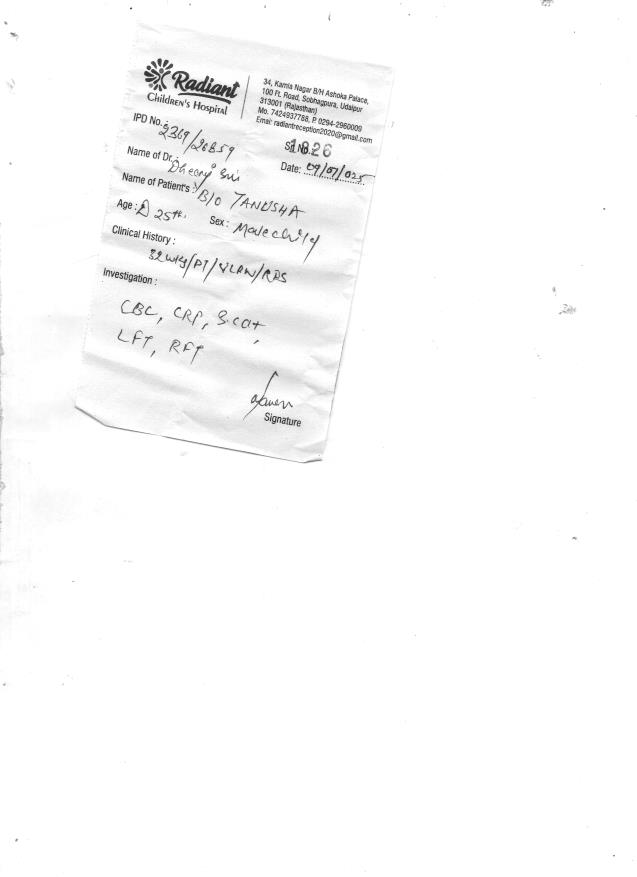 Radiant
Children's Hospital
34, Kamla Nagar B/H Ashoka Palace,
100 Ft. Road, Sobhagpura, Udaipur
313001 (Rajasthan)
Mo. 7424937788, P. 0294-2960009
Email: radiantreception2020@gmail.com
IPD No.: 2369/26859
1826
Name of Dr.: Dheeraj Sir
Date: 09/07/025
Name of Patient's: B/O TANUSHA
Age: D 25th. Sex: Male child
Clinical History:
32 wks/PT/VLBW/RDS
Investigation:
CBC, CRP, S.Cat,
LFT, RFT
Signature